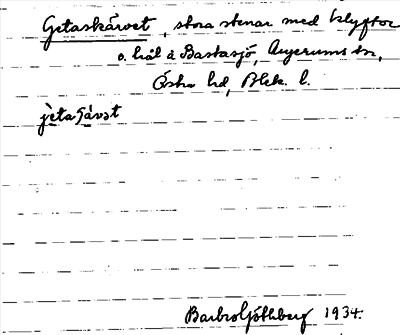 Getaskäret, stora stenar med klyftor
o. hål å Bastasjö, Augerums sn,
Östra hd, Blek. l.
Barbro Göthberg 1934.